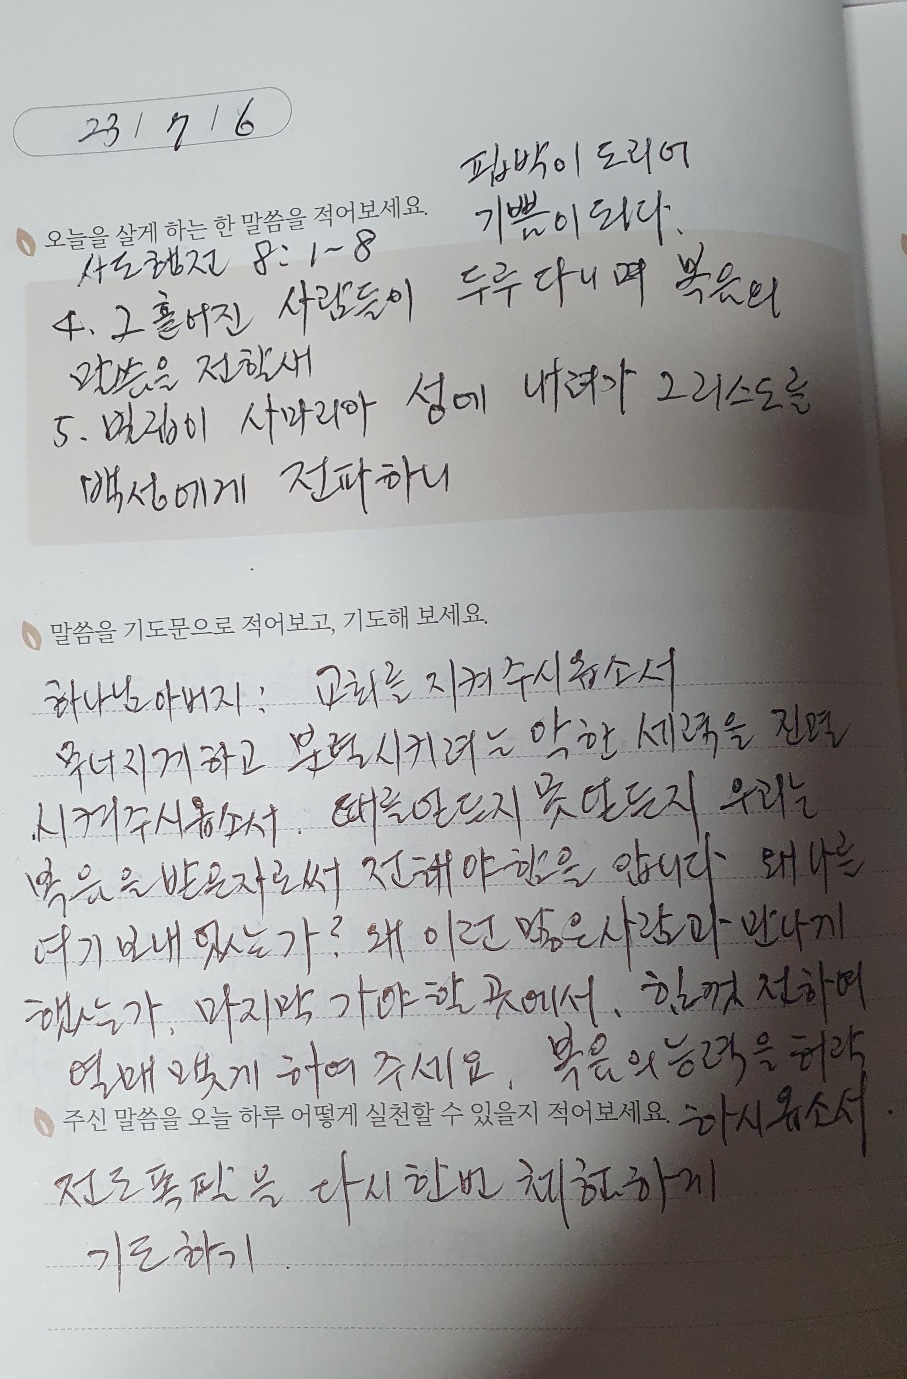 23 / 7 / 6
핍박이 도리어
기쁨이 되다.
오늘을 살게 하는 한 말씀을 적어보세요.
사도행전 8: 1~8
4. 그 흩어진 사람들이 두루 다니며 복음의
말씀을 전할새
5. 빌립이 사마리아 성에 내려가 그리스도를
백성에게 전파하니
말씀을 기도문으로 적어보고, 기도해 보세요.
하나님아버지: 교회를 지켜주시옵소서
무너지게하고 분열시키려는 악한 세력을 진멸
시켜주시옵소서. 때를얻든지 못얻든지 우리는
복음을받은자로써 전해야함을 압니다 왜 나를
여기 보내 있는가? 왜 이런 많은사람과 만나게
했는가. 마지막 가야할 곳에서. 힘껏 전하여
열매 맺게 하여 주세요. 복음의능력을허락
주신 말씀을 오늘 하루 어떻게 실천할 수 있을지 적어보세요. 하시옵소서.
전도폭발을 다시한번 체험하게
기도하기.